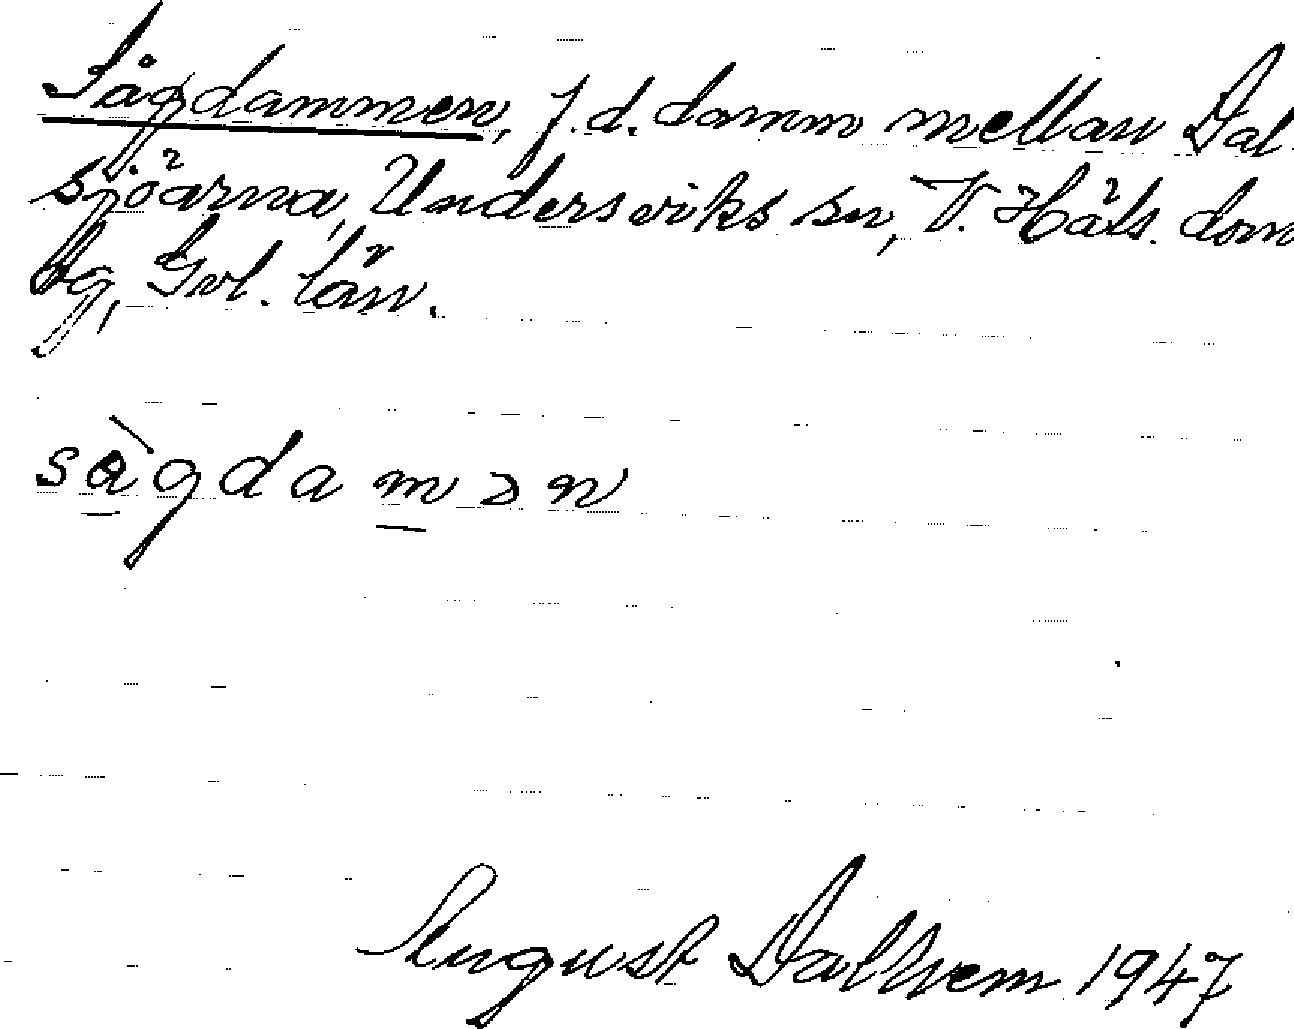 Sågdammen, f.d. damm mellan Dal-
sjöarna, Undersviks sn, V. Häls. dom
sg, Gvl. län.
sàgdamən
August Dalhem 1947